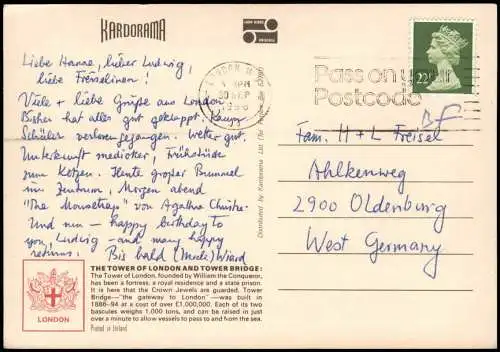 KARDORAMA
Liebe Hanne, lieber Ludwig,
liebe Freiselinen!
Viele + liebe Grüße aus London.
Bisher hat alles gut geklappt. Kaum
Schüler verloren gegangen. Wetter gut.
Unterkunft medioker, Frühstücke
zum Kotzen. Heute großer Bummel
im Zentrum, Morgen abend
"The Mousetrap" von Agatha Christie.
Und nun – happy birthday to
you, Ludwig – and many happy
returns. Bis bald (Male) Wiard
LONDON
THE TOWER OF LONDON AND TOWER BRIDGE:
The Tower of London, founded by William the Conqueror,
has been a fortress, a royal residence and a state prison.
It is here that the Crown Jewels are guarded. Tower
Bridge—"the gateway to London"—was built in
1886-94 at a cost of over £1,000,000. Each of its two
bascules weighs 1,000 tons, and can be raised in just
over a minute to allow vessels to pass to and from the sea.
Printed in Ireland
Distributed by Kardorama Ltd
LONDON
30 SEP
Pass on y
Postcode
22P
Fam. H + L Freisel
Ahlkenweg
2900 Oldenburg
West Germany